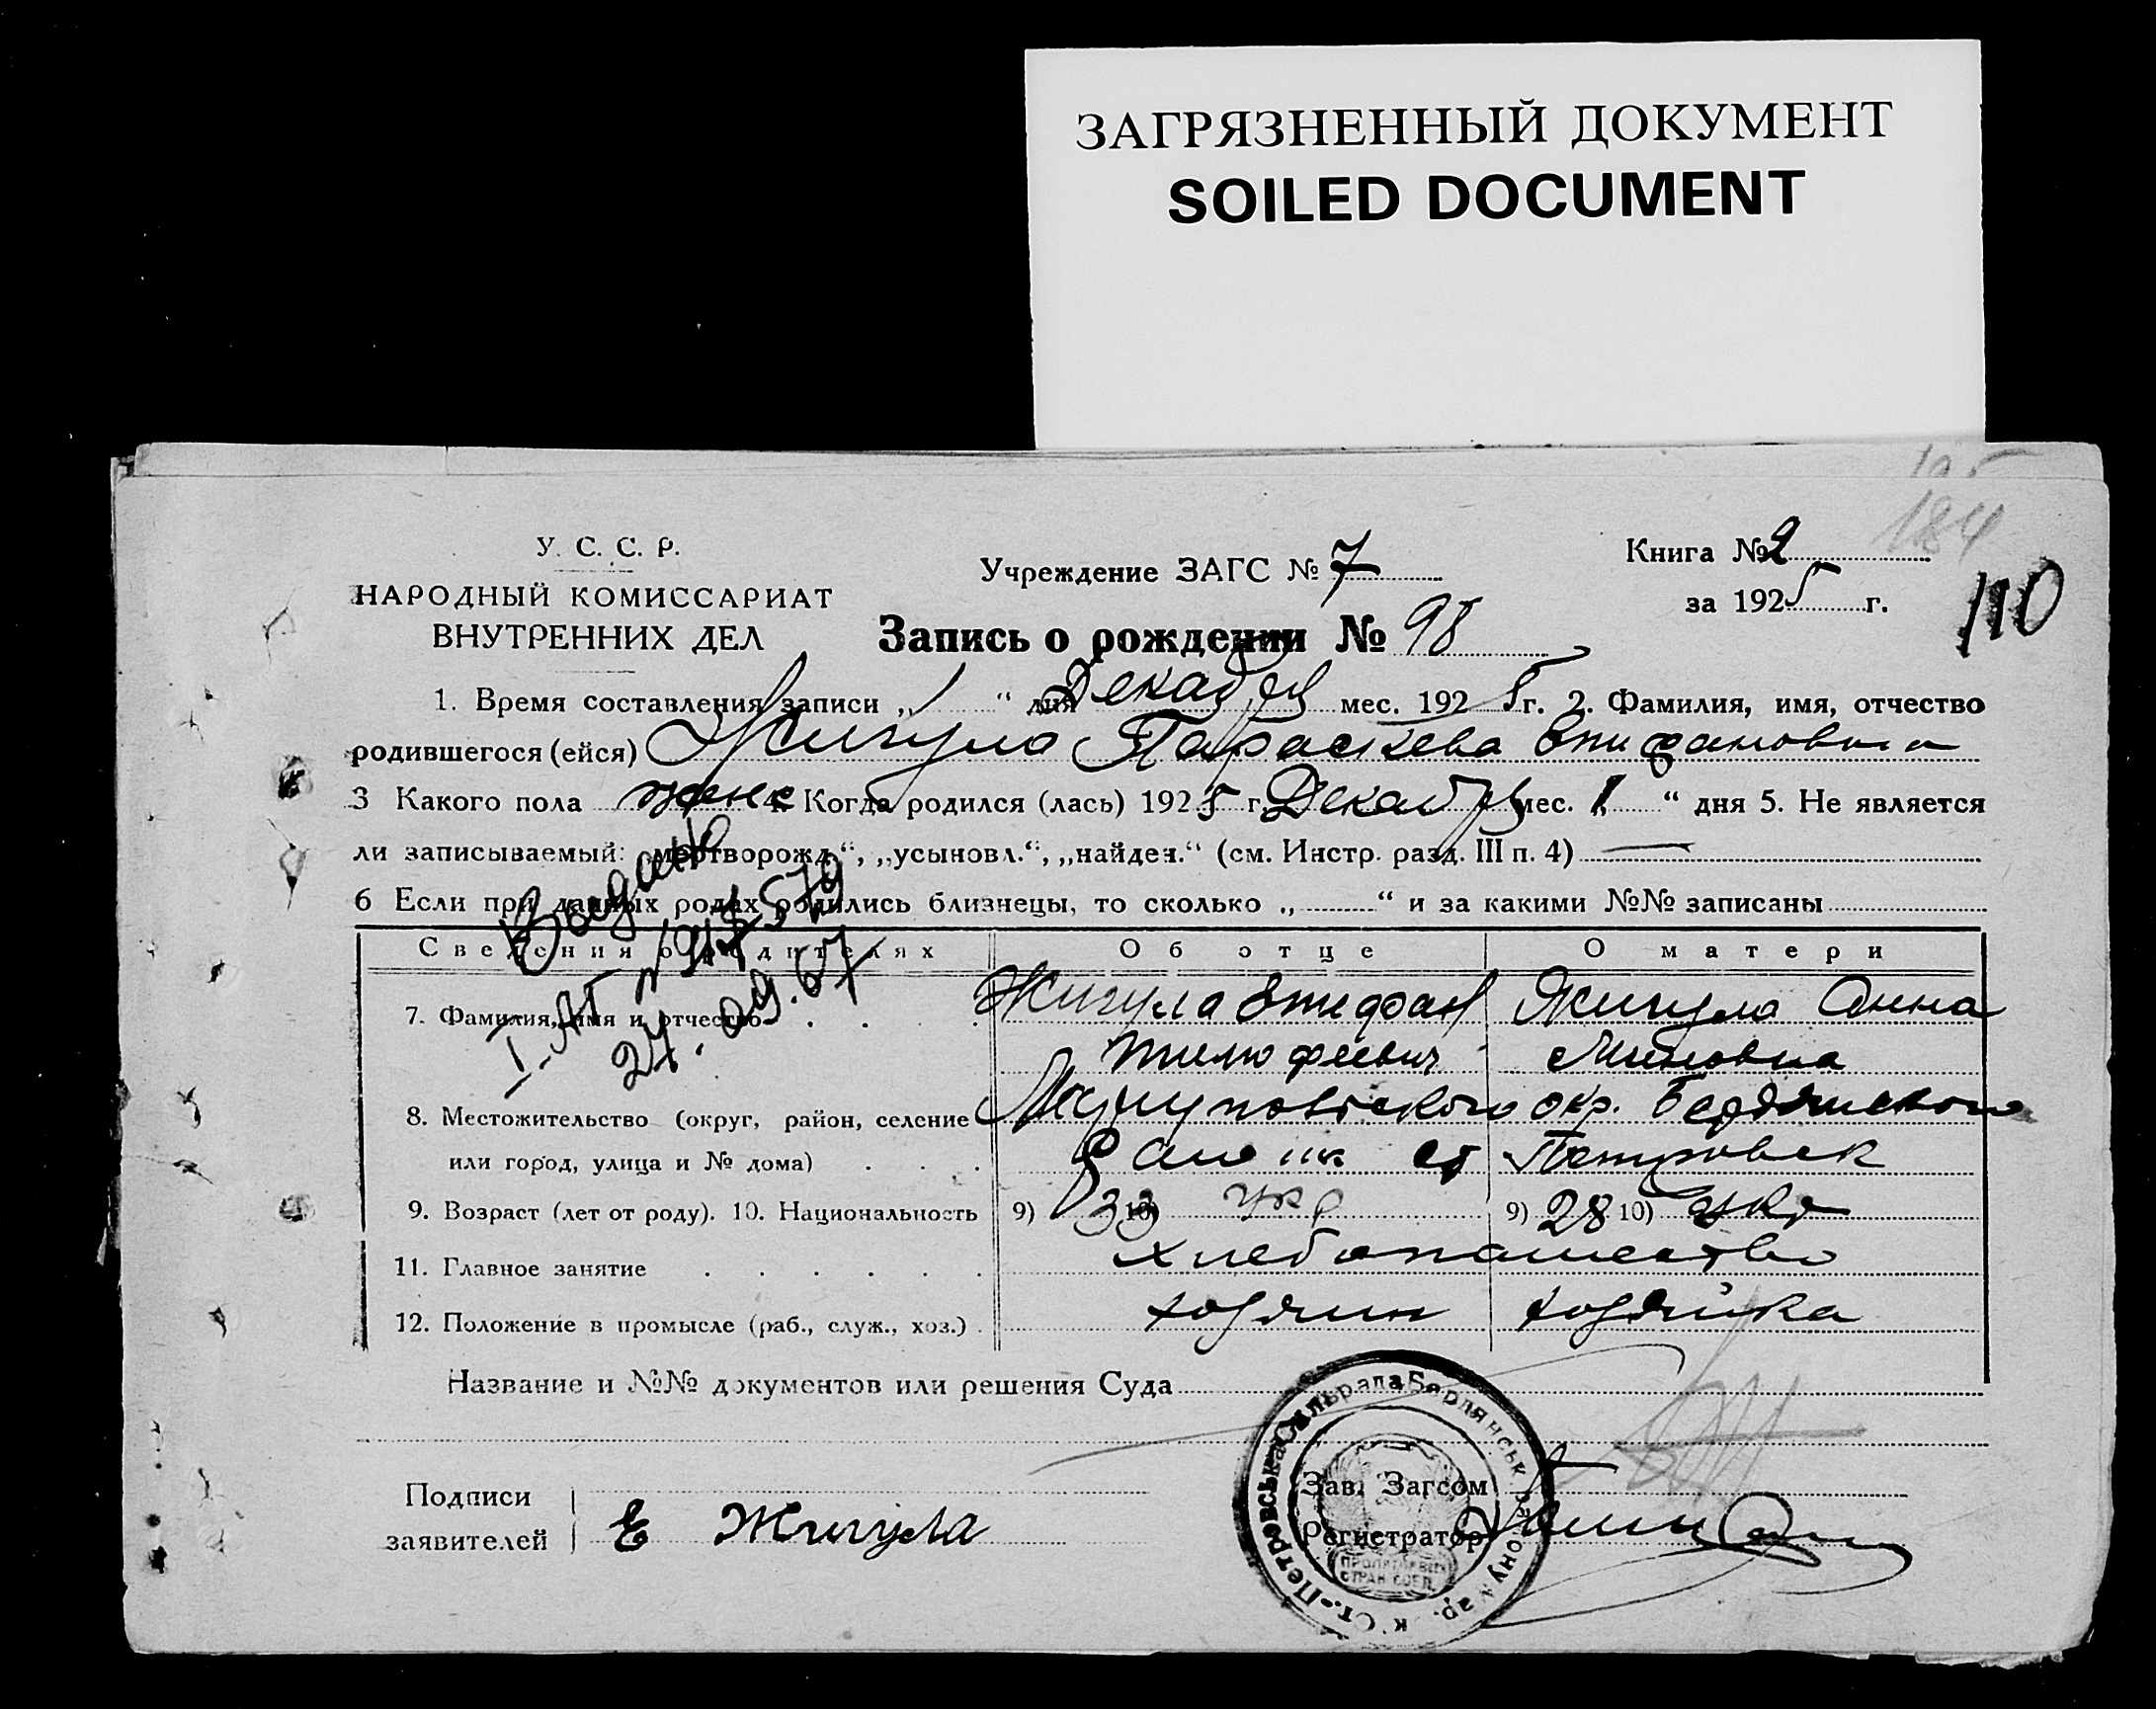 ЗАГРЯЗНЕННЫЙ ДОКУМЕНТ
SOILED DOCUMENT
184
У. С. С. Р.
НАРОДНЫЙ КОМИССАРИАТ
ВНУТРЕННИХ ДЕЛ
Учреждение ЗАГС № 7
Книга № 2
за 1925 г.
110
Запись о рождении № 98
1. Время составления записи „1“ дня Декабря мес. 1925 г. 2. Фамилия, имя, отчество
родившегося (ейся) Жигула Параскева Епифановна
3 Какого пола женс 4. Когда родился (лась) 1925 г. Декабр мес. „1“ дня 5. Не является
ли записываемый: „мертворожд.“, „усыновл.“, „найден.“ (см. Инстр. разд. III п. 4) —
6 Если при данных родах родились близнецы, то сколько „ “ и за какими №№ записаны
Выдано
I-АП №
24.09.07
Сведения о родителях Об отце О матери
7. Фамилия, имя и отчество Жигула Епифан Жигула Анна
Тимофеевич Миновна
8. Местожительство (округ, район, селение Мариупольского окр. Бердянского
или город, улица и № дома) ст Петровск
9. Возраст (лет от роду). 10. Национальность 9) 33 10) укр 9) 28 10) укр
11. Главное занятие хлебопашество
12. Положение в промысле (раб., служ., хоз.) хозяин хозяйка
Название и №№ документов или решения Суда
Подписи
заявителей Е Жигула
Зав. Загсом
Регистратор
Ст.-Петровська Сильрада Бердянськ району